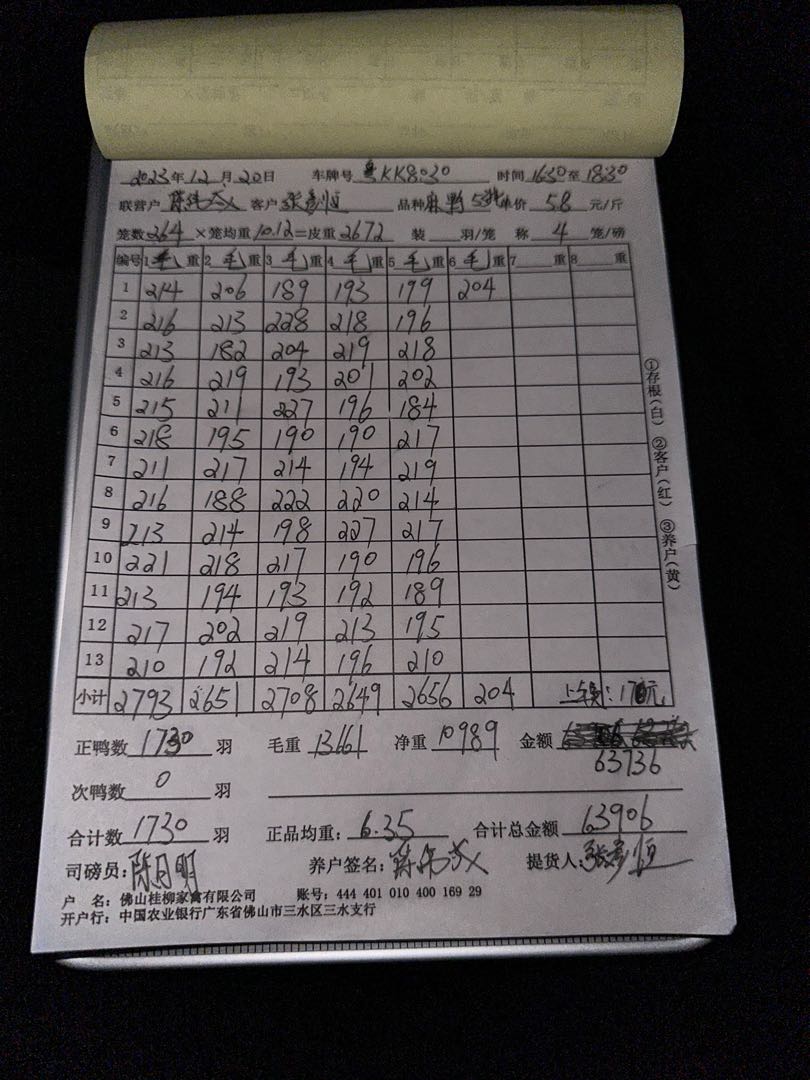 2023年12月20日 车牌号 粤KK8030 时间 1630至1830
联营户 客户 张彦恒 品种 麻鸭 单价 5.8 元/斤
笼数 264 ×笼均重 10.12 =皮重 2672 装 羽/笼 称 4 笼/磅
编号 1 毛 重 2 毛 重 3 毛 重 4 毛 重 5 毛 重 6 毛 重 7 重 8 重
1 214 206 189 193 199 204
2 216 213 228 218 196
3 213 182 204 219 218
4 216 219 193 201 202
5 215 211 227 196 184
6 218 195 190 190 217
7 211 217 214 194 219
8 216 188 222 220 214
9 213 214 198 227 217
10 221 218 217 190 196
11 213 194 193 192 189
12 217 202 219 213 195
13 210 192 214 196 210
小计 2793 2651 2708 2649 2656 204 上车费:170元
正鸭数 1730 羽 毛重 13661 净重 10989 金额 63736
次鸭数 0 羽
合计数 1730 羽 正品均重: 6.35 合计总金额 63906
司磅员: 陈月明 养户签名: 提货人: 张彦恒
户 名: 佛山桂柳家禽有限公司 账号: 444 401 010 400 169 29
开户行: 中国农业银行广东省佛山市三水区三水支行
①存根(白) ②客户(红) ③养户(黄)